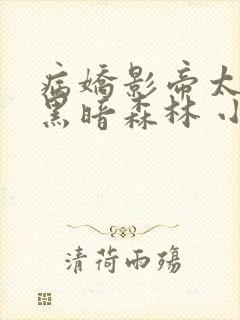 病嬌影帝太
黑暗森林 小
清荷雨殤